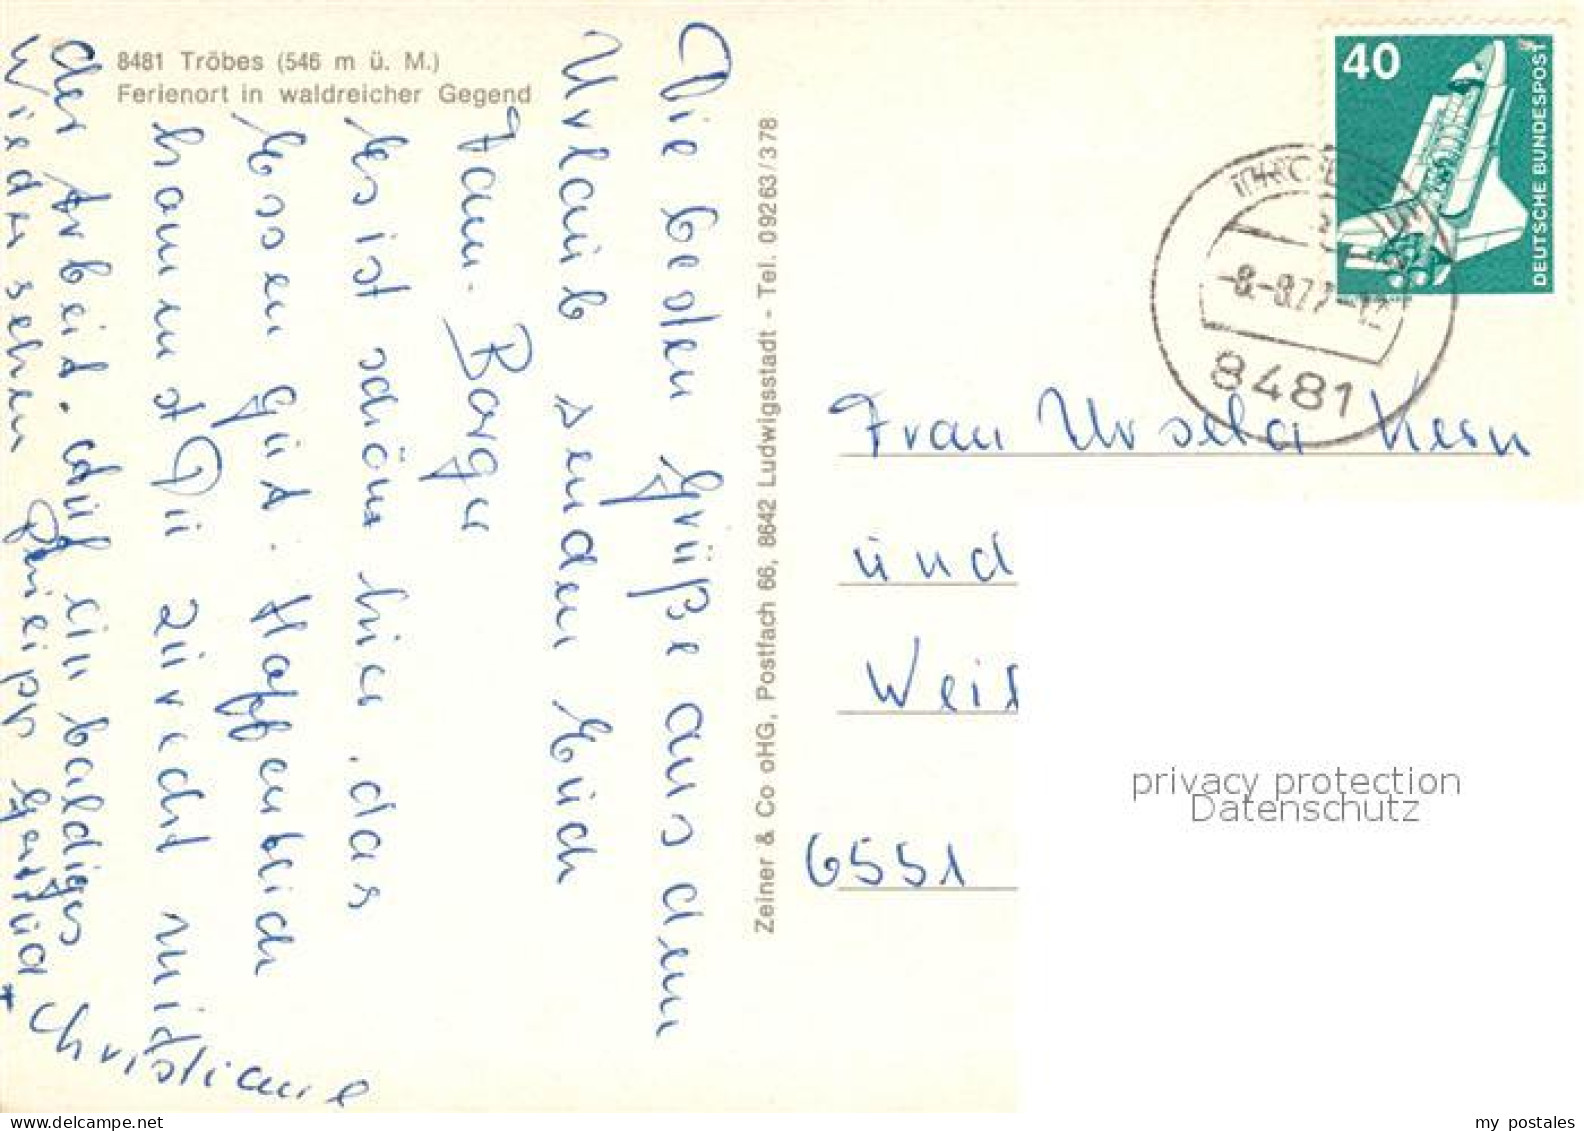 8481 Tröbes (546 m ü. M.)
Ferienort in waldreicher Gegend
Die besten Grüße aus dem
Urlaub senden Euch
Fam. Berger
Es ist schön hier, das
Essen gut. Hoffentlich
kommst Du zurecht mit
der Arbeit. Auf ein baldiges
Wiedersehen
Gertrud
+ Christiane
Zeiner & Co oHG, Postfach 66, 8642 Ludwigsstadt - Tel. 09263/378
40
DEUTSCHE BUNDESPOST
-8.-9.77-12
8481
Frau Ursela Kern
und
Weis
6551
privacy protection
Datenschutz
my postales